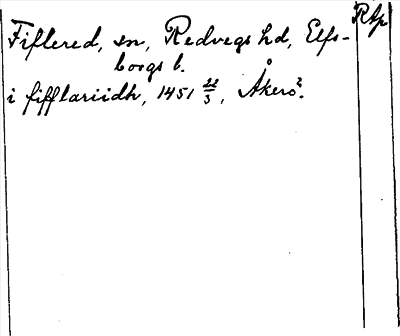 Fiflered, sn, Redvegs hd, Elfs-
borgs l.
i fifflariidh, 1451 22/3, Åkerö?.
Rtp